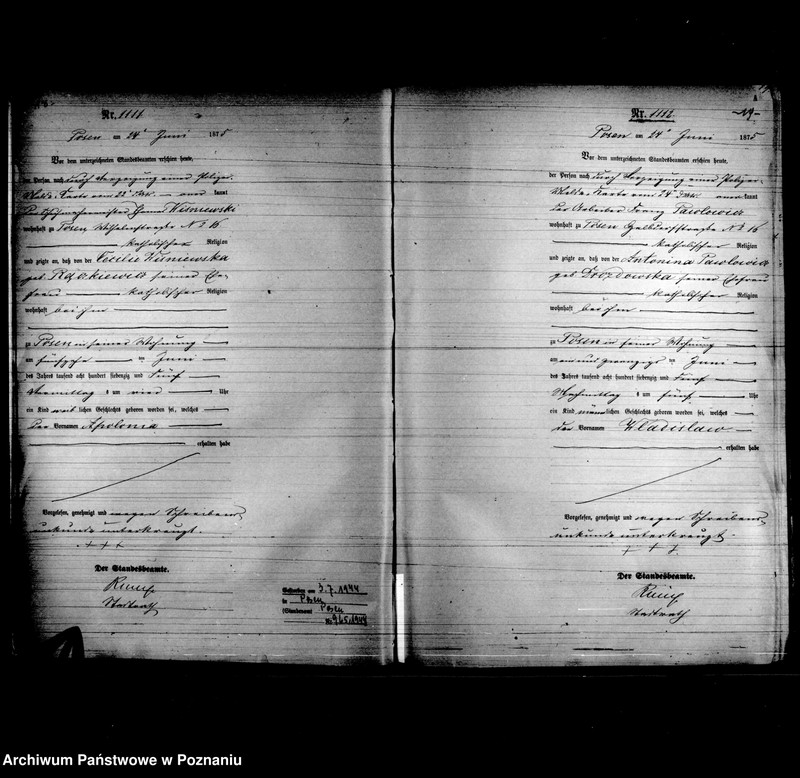 Nr. 1111
Posen am 24t Juni 1875
Vor dem unterzeichneten Standesbeamten erschien heute,
der Person nach durch Vorzeigung einer Polizei-
Melde-Karte vom 22t d. Mts. aner kannt
Wiśniewski
wohnhaft zu Posen Wilhelmstraße No 16
katholischer Religion
und zeigte an, daß von der Cecilie Wiśniewska
geb seiner Ehe-
frau katholischer Religion
wohnhaft bei ihm
zu Posen in seiner Wohnung
am ten Juni
des Jahres tausend acht hundert siebenzig und fünf
Vormittag s um vier Uhr
ein Kind weib lichen Geschlechts geboren worden sei, welches
der Vornamen Apolonia
erhalten habe
Vorgelesen, genehmigt und wegen Schreibens-
unkunde unterkreuzt.
+ + +
Der Standesbeamte.
Stadtrath
Gestorben am 3.7.1944
in Posen
(Standesamt Posen
Nr. 965/1944
Nr. 1112
-29-
Posen am 24t Juni 1875
Vor dem unterzeichneten Standesbeamten erschien heute,
der Person nach durch Vorzeigung einer Polizei-
Melde-Karte vom 24t d. Mts. aner kannt
der Arbeiter Franz Pawlowicz
wohnhaft zu Posen No 16
katholischer Religion
und zeigte an, daß von der Antonina Pawlowicz
geb Drozdowska seiner Ehefrau
katholischer Religion
wohnhaft bei ihm
zu Posen in seiner Wohnung
am ein und zwanzigsten Juni
des Jahres tausend acht hundert siebenzig und fünf
Nachmittag s um fünf Uhr
ein Kind männ lichen Geschlechts geboren worden sei, welches
der Vornamen Wladislaw
erhalten habe
Vorgelesen, genehmigt und wegen Schreibens-
unkunde unterkreuzt.
+ + +
Der Standesbeamte.
Stadtrath
Archiwum Państwowe w Poznaniu